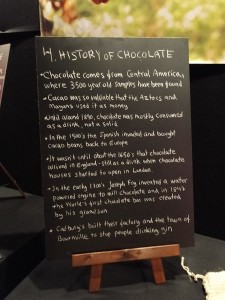 4. HISTORY OF CHOCOLATE
• Chocolate comes from Central America,
where 3500 year old samples have been found
• Cacao was so valuable that the Aztecs and
Mayans used it as money
• Until around 1850, chocolate was mostly consumed
as a drink, not a solid
• In the 1500's the Spanish invented and bought
cacao beans back to Europe
• It wasn't until about the 1650's that chocolate
arrived in England - still as a drink when chocolate
houses started to open in London.
• In the early 1800's Joseph Fry invented a water
powered engine to mill chocolate and in 1847
the World's first chocolate bar was created
by his grandson
• Cadbury's built their factory and the town of
Bournville to stop people drinking gin